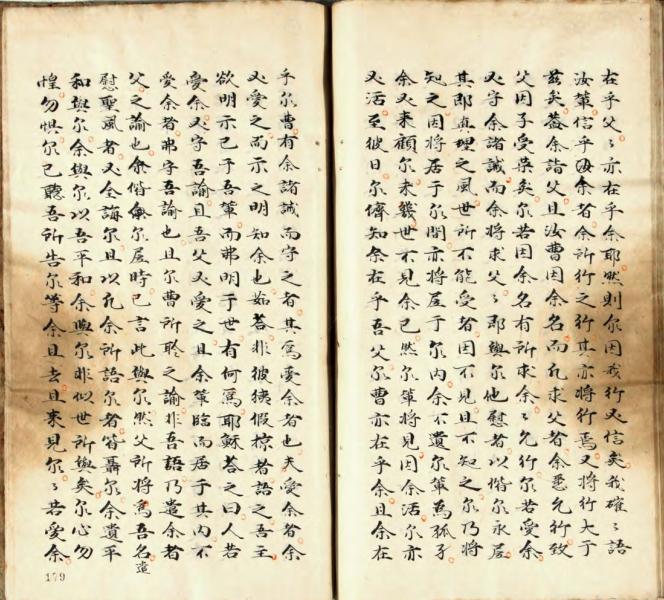 在乎父〻亦在乎余耶然則尔因我行又信矣我確〻語
汝等信乎余者余所行之行其亦將行焉又將行大于
茲矣蓋余詣父且汝曹因余名而凡求父者余悉允行致
父因子受榮矣尔若因余名有所求余〻允行尔若愛余
又守余諸誡而余將求父〻即與尔他慰者以偕尔永居
其即真理之風世所不能受者因不見且不知之尔乃將
知之因將居于尔間亦將居于尔內余不遺尔等為孤子
余又來顧尔未幾世不見余已然尔等將見因余活尔亦
又活至彼日尔儕知余在乎吾父尔曹亦在乎余且余在
乎尔曹有余諸誡而守之者其為愛余者也夫愛余者余
又愛之而示之明知余也茹荅非彼侇假掠者語之吾主
欲明示己于吾等而弗明于世有何為耶穌荅之曰人若
愛余又守吾諭且吾父又愛之且余等臨而居于其內不
愛余者弗守吾諭也且尔曹所聆之諭非吾語乃遣余者
父之諭也余偕尔居時已言此與尔然父所將為吾名遣
慰聖風者又全誨尔且以凡余所語尔者皆囑尔余遺平
和與尔余與尔以吾平和余與尔非似世所與矣尔心勿
惶勿惧尔已聽吾所告尔等余且去且來見尔〻若愛余
179